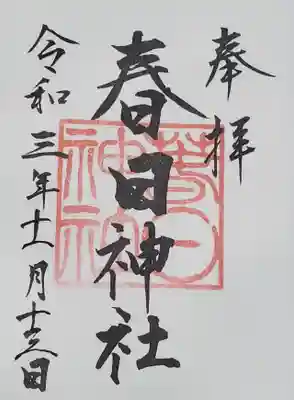 奉拝
春日神社
春日
神社
令和三年十一月十三日